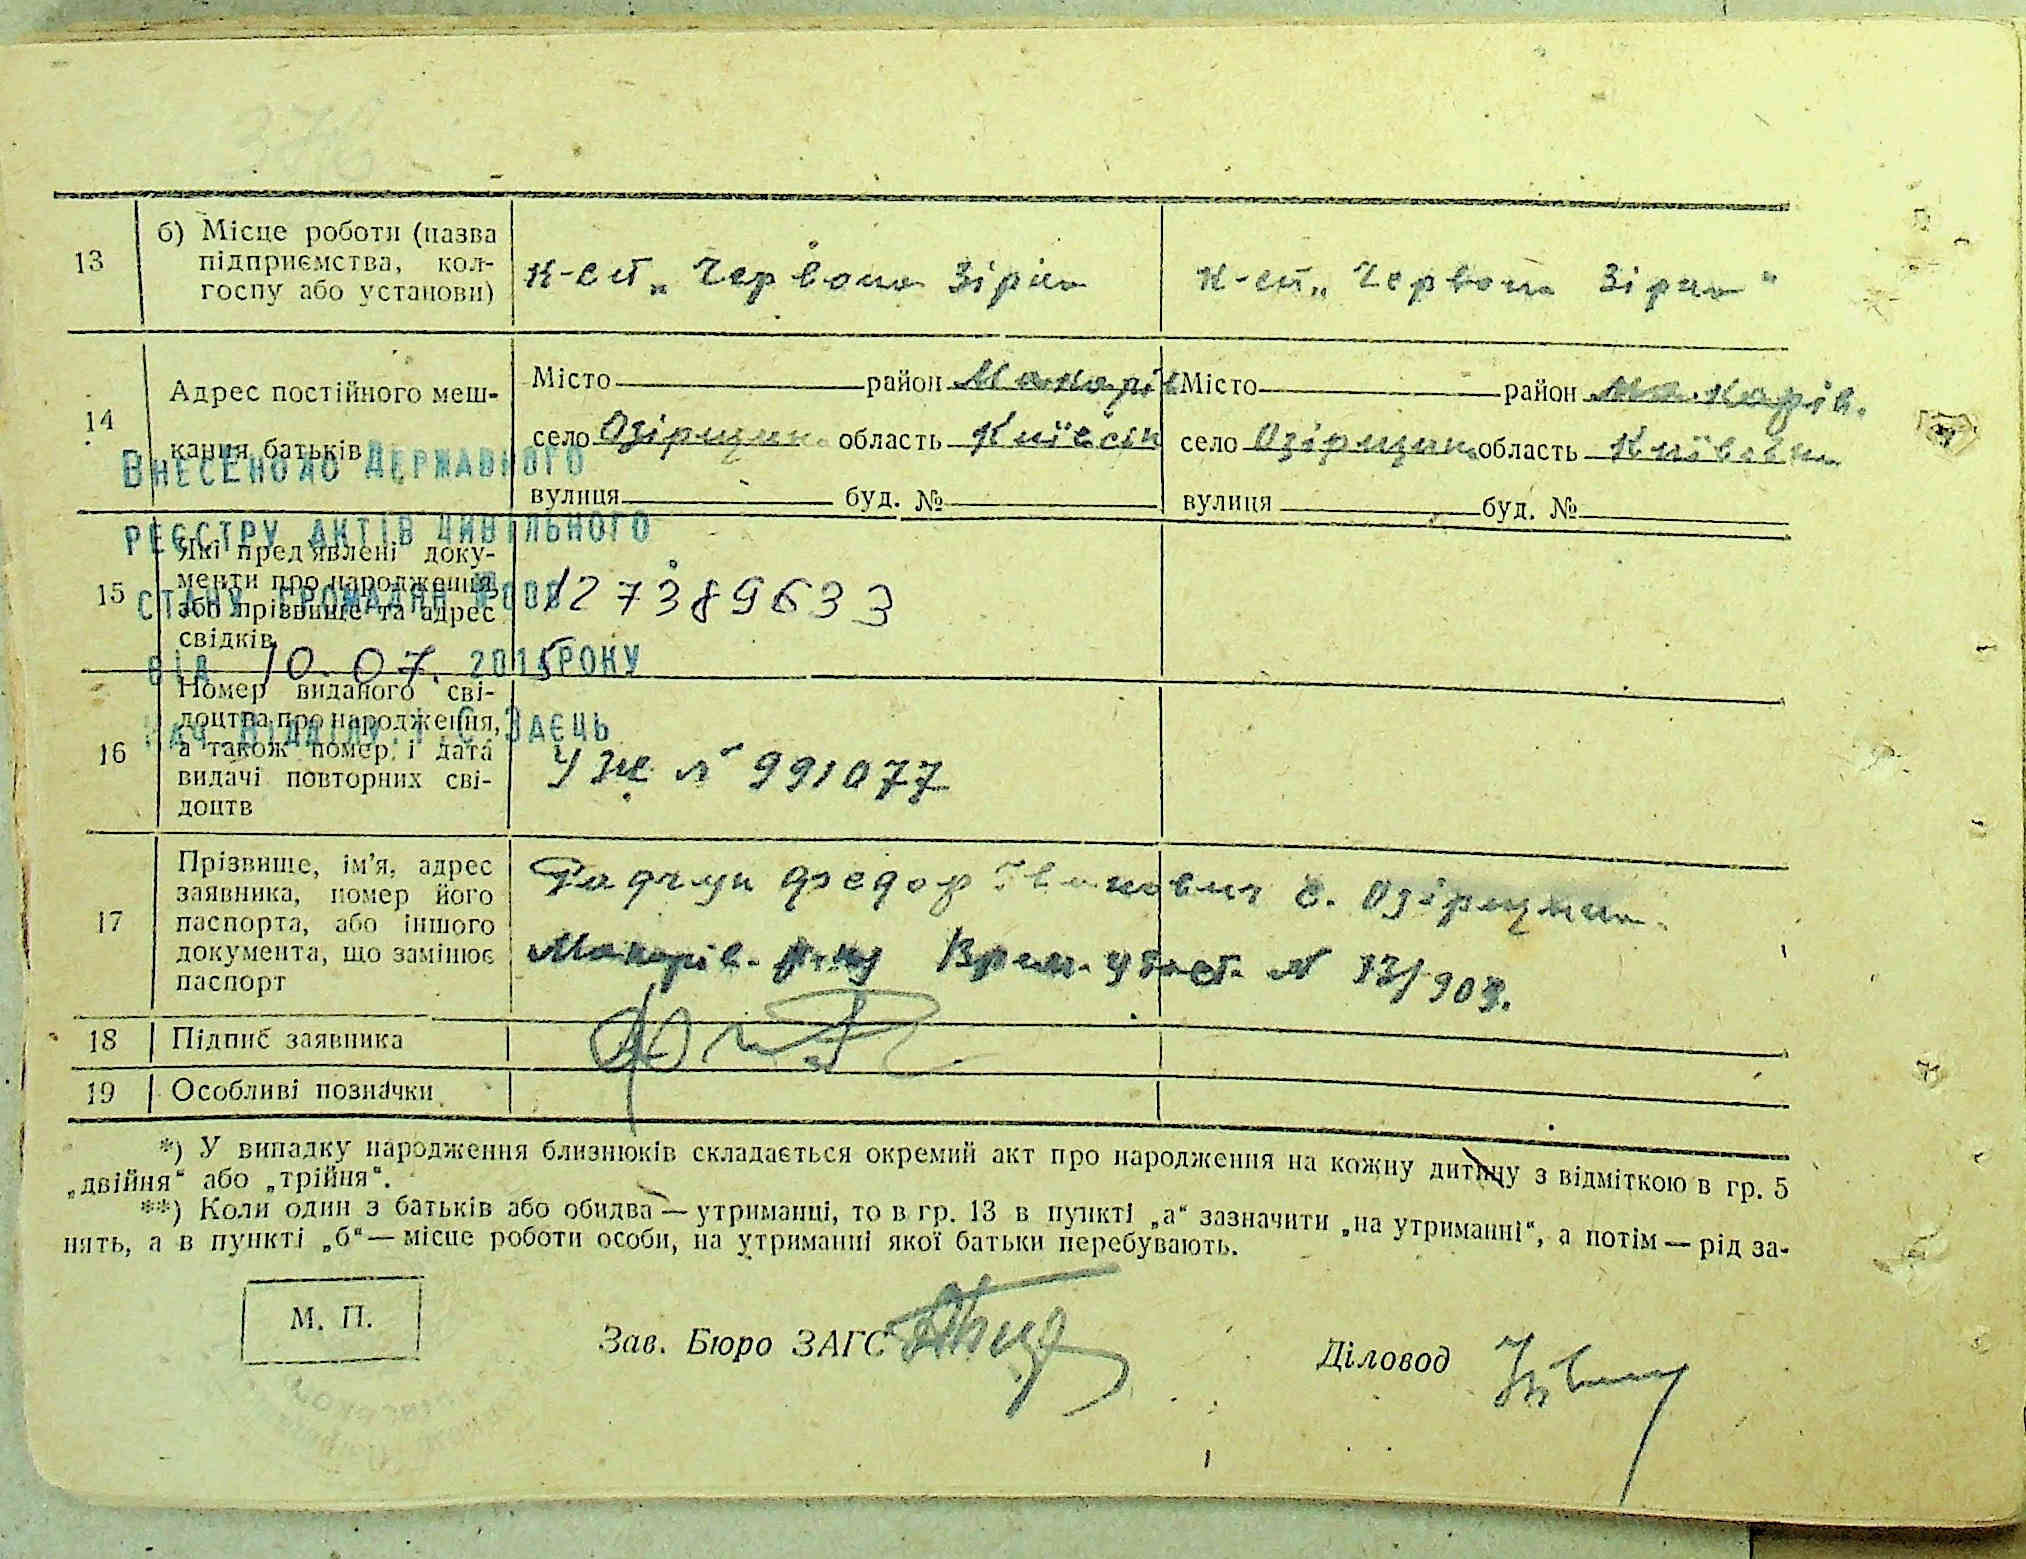 13
б) Місце роботи (назва
підприємства, кол-
госпу або установи)
к-сп „Червона Зірка
к-сп „Червона Зірка"
14
Адрес постійного меш-
кання батьків
Місто район Макарів
село Озірщина область Київськ
вулиця буд. №
Місто район Макарів.
село Озірщина область Київськ
вулиця буд. №
Внесено до Державного
реєстру актів цивільного
стану громадян
від 10.07. 2015 року
Нач. відділу І.С. Заєць
15
Які пред'явлені доку-
менти про народження,
або прізвище та адрес
свідків
127389633
16
Номер виданого сві-
доцтва про народження,
а також номер і дата
видачі повторних сві-
доцтв
УЖ № 991077
17
Прізвище, ім'я, адрес
заявника, номер його
паспорта, або іншого
документа, що замінює
паспорт
Федор Іванович с. Озірщина.
Макарів. р-ну Врем. удост. №
18 Підпис заявника
19 Особливі позначки
*) У випадку народження близнюків складається окремий акт про народження на кожну дитину з відміткою в гр. 5
„двійня" або „трійня".
**) Коли один з батьків або обидва — утриманці, то в гр. 13 в пункті „а" зазначити „на утриманні", а потім — рід за-
нять, а в пункті „б" — місце роботи особи, на утриманні якої батьки перебувають.
М. П.
Зав. Бюро ЗАГС
Діловод